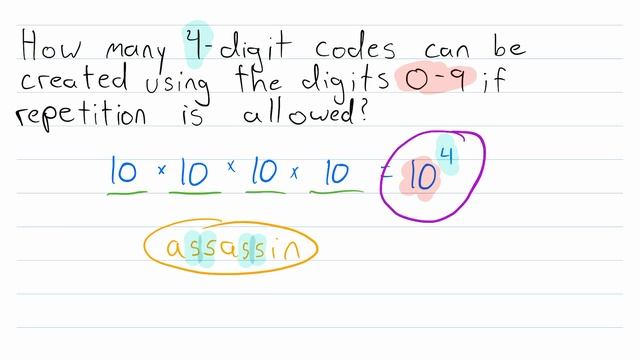 How many 4-digit codes can be
created using the digits 0-9 if
repetition is allowed?
10 × 10 × 10 × 10 = 10⁴
assassin